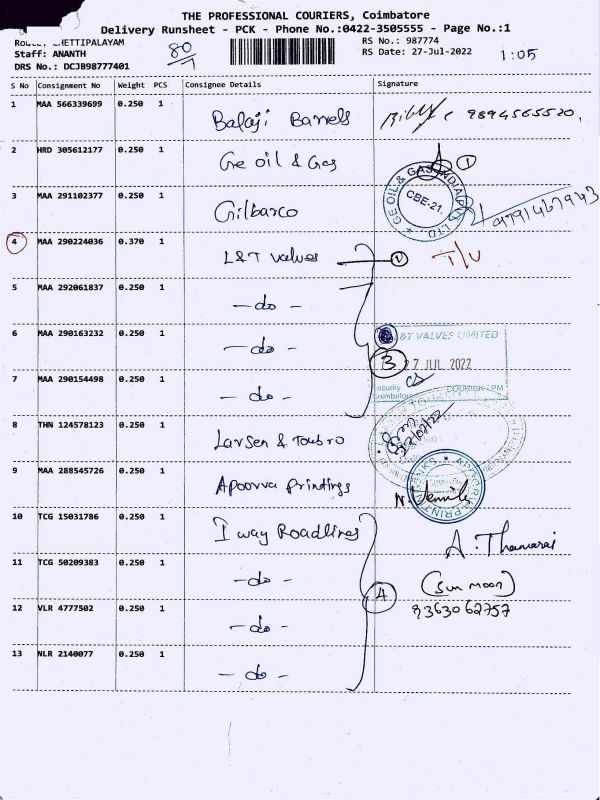 THE PROFESSIONAL COURIERS, Coimbatore
Delivery Runsheet - PCK - Phone No.:0422-3505555 - Page No.:1
CHETTIPALAYAM
Staff: ANANTH
DRS No.: DCJB98777401
80
RS No.: 987774
RS Date: 27-Jul-2022
1:05
S No Consignment No Weight PCS Consignee Details Signature
1 MAA 566339699 0.250 1 Balaji Barrels 9894565520,
2 HRD 305612177 0.250 1 Ge oil & Gas 1
3 MAA 291102377 0.250 1 Gilbarco
GE OIL & GAS INDIA PVT. LTD.
CBE-21.
9791467943
4 MAA 290224036 0.370 1 L&T valves T/V
5 MAA 292061837 0.250 1 - do -
6 MAA 290163232 0.250 1 - do -
&T VALVES LIMITED
3
27 JUL 2022
7 MAA 290154498 0.250 1 - do -
COURIER
8 THN 124578123 0.250 1 Larsen & Toubro
9 MAA 288545726 0.250 1 Apoorva Printings
10 TCG 15031786 0.250 1 I way Roadlines A. Thamarai
11 TCG 50209383 0.250 1 - do - 4 (Sun moon)
12 VLR 4777502 0.250 1 - do - 9363062757
13 NLR 2140077 0.250 1 - do -